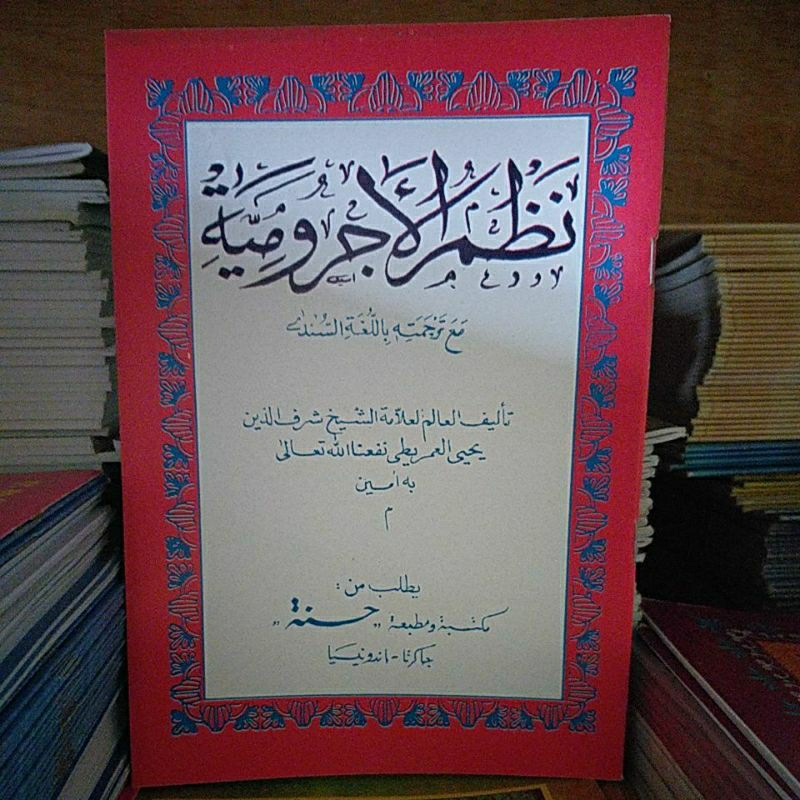 نَظْمُ الْأَجُرُّومِيَّةِ
مَعَ تَرْجَمَتِهِ بِاللُّغَةِ السُّنْدَى
تأليف العالم لعلامة الشيخ شرف الدين
يحيى العمريطى نفعنا الله تعالى
به امين
م
يطلب من :
مكتبة ومطبعة "حسنة"
جاكرتا - اندونيسيا